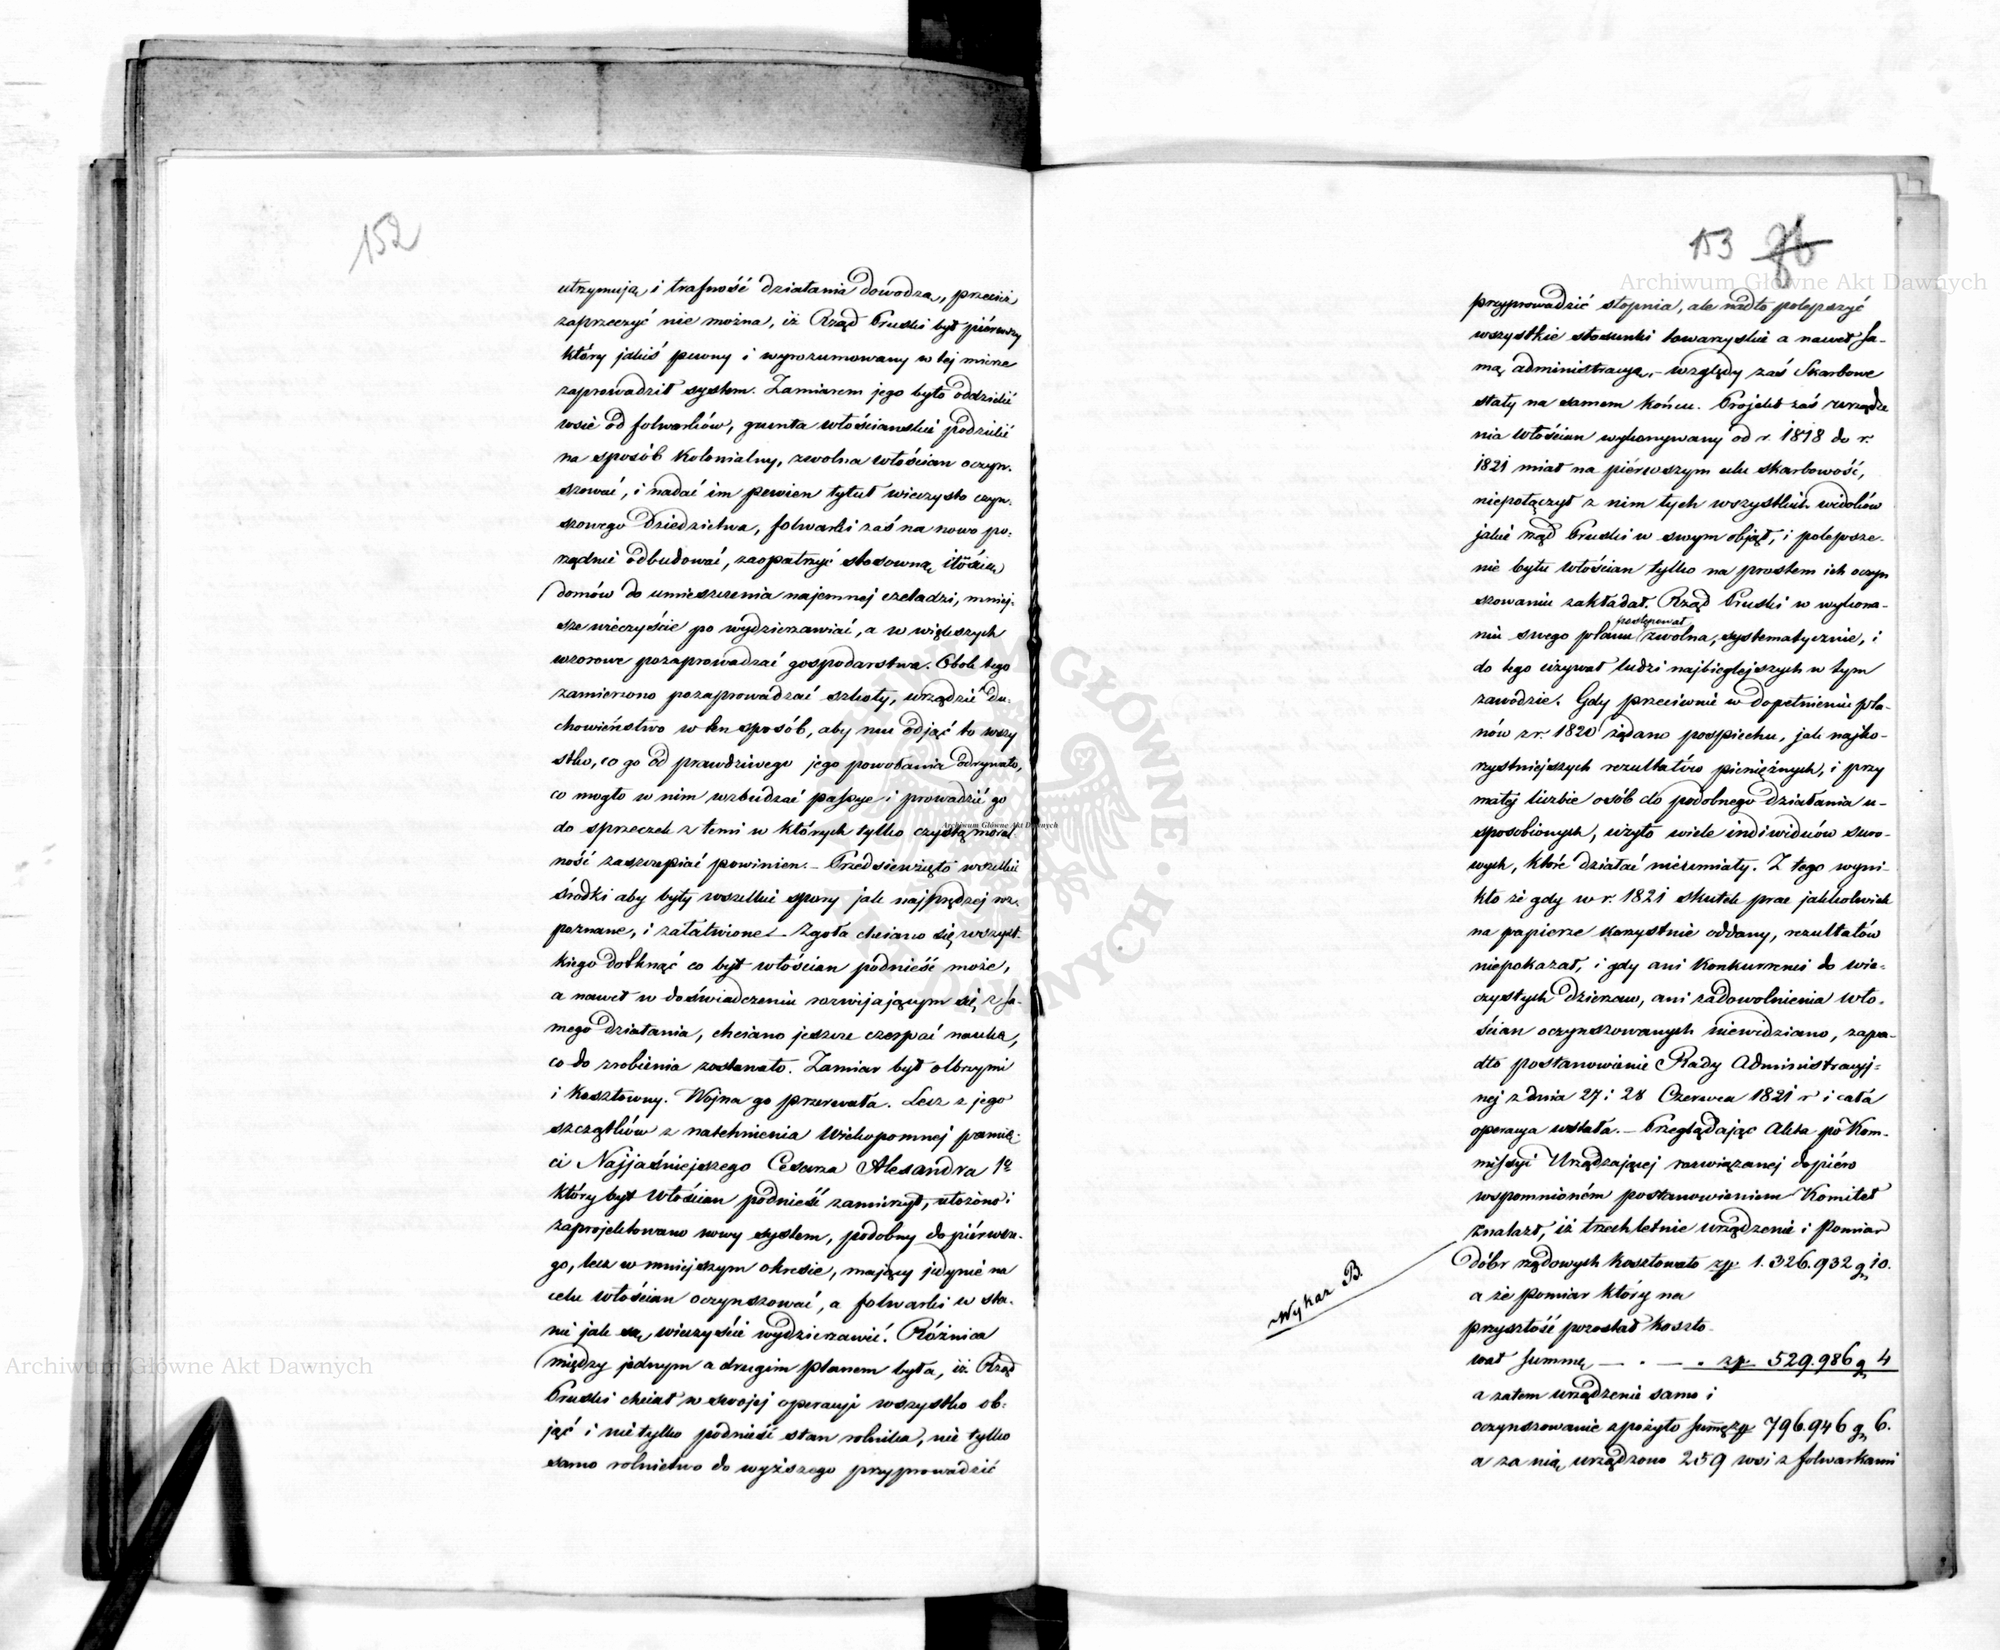 152
utrzymują, i trafność działania dowodzą, przecież
zaprzeczyć nie można, iż Rząd Pruski był piérwszy
który jakiś pewny i wyrozumowany w tej mierze
zaprowadził system. Zamiarem jego było oddzielić
wsie od folwarków, grunta włościanskie podzielić
na sposób kolonialny, zwolna włościan oczyn-
szować, i nadać im pewien tytuł wieczysto czyn-
szowego dziedzictwa, folwarki zaś na nowo po-
rządnie odbudować, zaopatrzyć stosowną ilością
domów do umieszczenia najemnej czeladzi, mniej-
sze wieczyście po wydzierzawiać, a w większych
wzorowe pozaprowadzać gospodarstwa. Obok tego
zamierzono pozaprowadzać szkoły, urządzić du-
chowieństwo w ten sposób, aby mu odjąć to wszy
stko, co go od prawdziwego jego powołania odrywało,
co mogło w nim wzbudzać passye i prowadzić go
do sprzeczek z temi w których tylko czystą moral
ność zaszczepiać powinien. – Przedsiewzięto wszelkie
środki aby były wszelkie spory jak najprędzej roz-
poznane, i załatwione – Zgoła chciano się wszyst-
kiego dotknąć co byt włościan podnieść może,
a nawet w doświadczeniu rozwijającym się, z sa-
mego działania, chciano jeszcze czerpać naukę,
co do zrobienia zostawało. Zamiar był olbrzymi
i kosztowny. Wojna go przerwała. Lecz z jego
szczątków z natchnienia Wiekopomnej pamię-
ci Najjaśniejszego Cesarza Alexandra 1º
który byt włościan podnieść zamierzył, ułożono i
zaprojektowano nowy system, podobny do piérwsze-
go, lecz w mniejszym okresie, mający jedynie na
celu włościan oczynszować, a folwarki w sta-
nie jak są, wieczyście wydzierzawić. Różnica
między jednym a drugim planem była, iż Rząd
Pruski chciał w swojej operacyi wszystko ob-
jąć i nie tylko podnieść stan rolnika, nie tylko
samo rolnictwo do wyższego przyprowadzić
153 76
przyprowadzić stopnia, ale nadto polepszyć
wszystkie stosunki towarzyskie a nawet sa-
mą administracyą, – względy zaś Skarbowe
stały na samem końcu. Projekt zaś urządze
nia włościan wykonywany od r. 1818 do r.
1821 miał na piérwszym celu skarbowość,
niepołączył z nim tych wszystkich widoków
jakie rząd Pruski w swym objął, i polepsze-
nie bytu włościan tylko na prostem ich oczyn
szowaniu zakładał. Rząd Pruski w wykona-
niu swego planu postępował zwolna, systematycznie, i
do tego używał ludzi najbieglejszych w tym
zawodzie. Gdy przeciwnie w dopełnieniu pla-
nów z r. 1820 żądano pospiechu, jak najko-
rzystniejszych rezultatów pieniężnych, i przy
małej liczbie osób do podobnego działania u-
sposobionych, użyto wiele indiwiduów suro-
wych, które działać nieumiały. Z tego wyni-
kło że gdy w r. 1821 skutek prac jakkolwiek
na papierze korzystnie oddany, rezultatów
niepokazał, i gdy ani Konkurrencyi do wie-
czystych dzierzaw, ani zadowolnienia wło-
ścian oczynszowanych niewidziano, zapa-
dło postanowienie Rady Administracyj-
nej z dnia 27 i 28 Czerwca 1821 r i cała
operacya ustała. – Przeglądając Akta po Kom-
missyi Urządzającej rozwiązanej dopiéro
wspomnioném postanowieniem Komitet
znalazł, iż trzechletnie urządzenie i pomiar
dóbr rządowych kosztowało zp 1.326.932 g 10.
Wykaz B.
a że pomiar który na
przyszłość pozostał koszto-
wał summę – . – . zp 529.986 g 4
a zatem urządzenie samo i
oczynszowanie spożyło summę zp 796.946 g 6.
a za nią urządzono 259 wsi z folwarkami
Archiwum Główne Akt Dawnych
Archiwum Główne Akt Dawnych
Archiwum Główne Akt Dawnych
ARCHIWUM GŁÓWNE AKT DAWNYCH